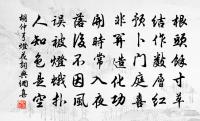 根頭餘寸草
結作層紅
預卜門庭喜
非關造化功
開時因入夜
落後不因風
誤被燈蛾撲
人知色是空
胡仲弓燈花詞典網集